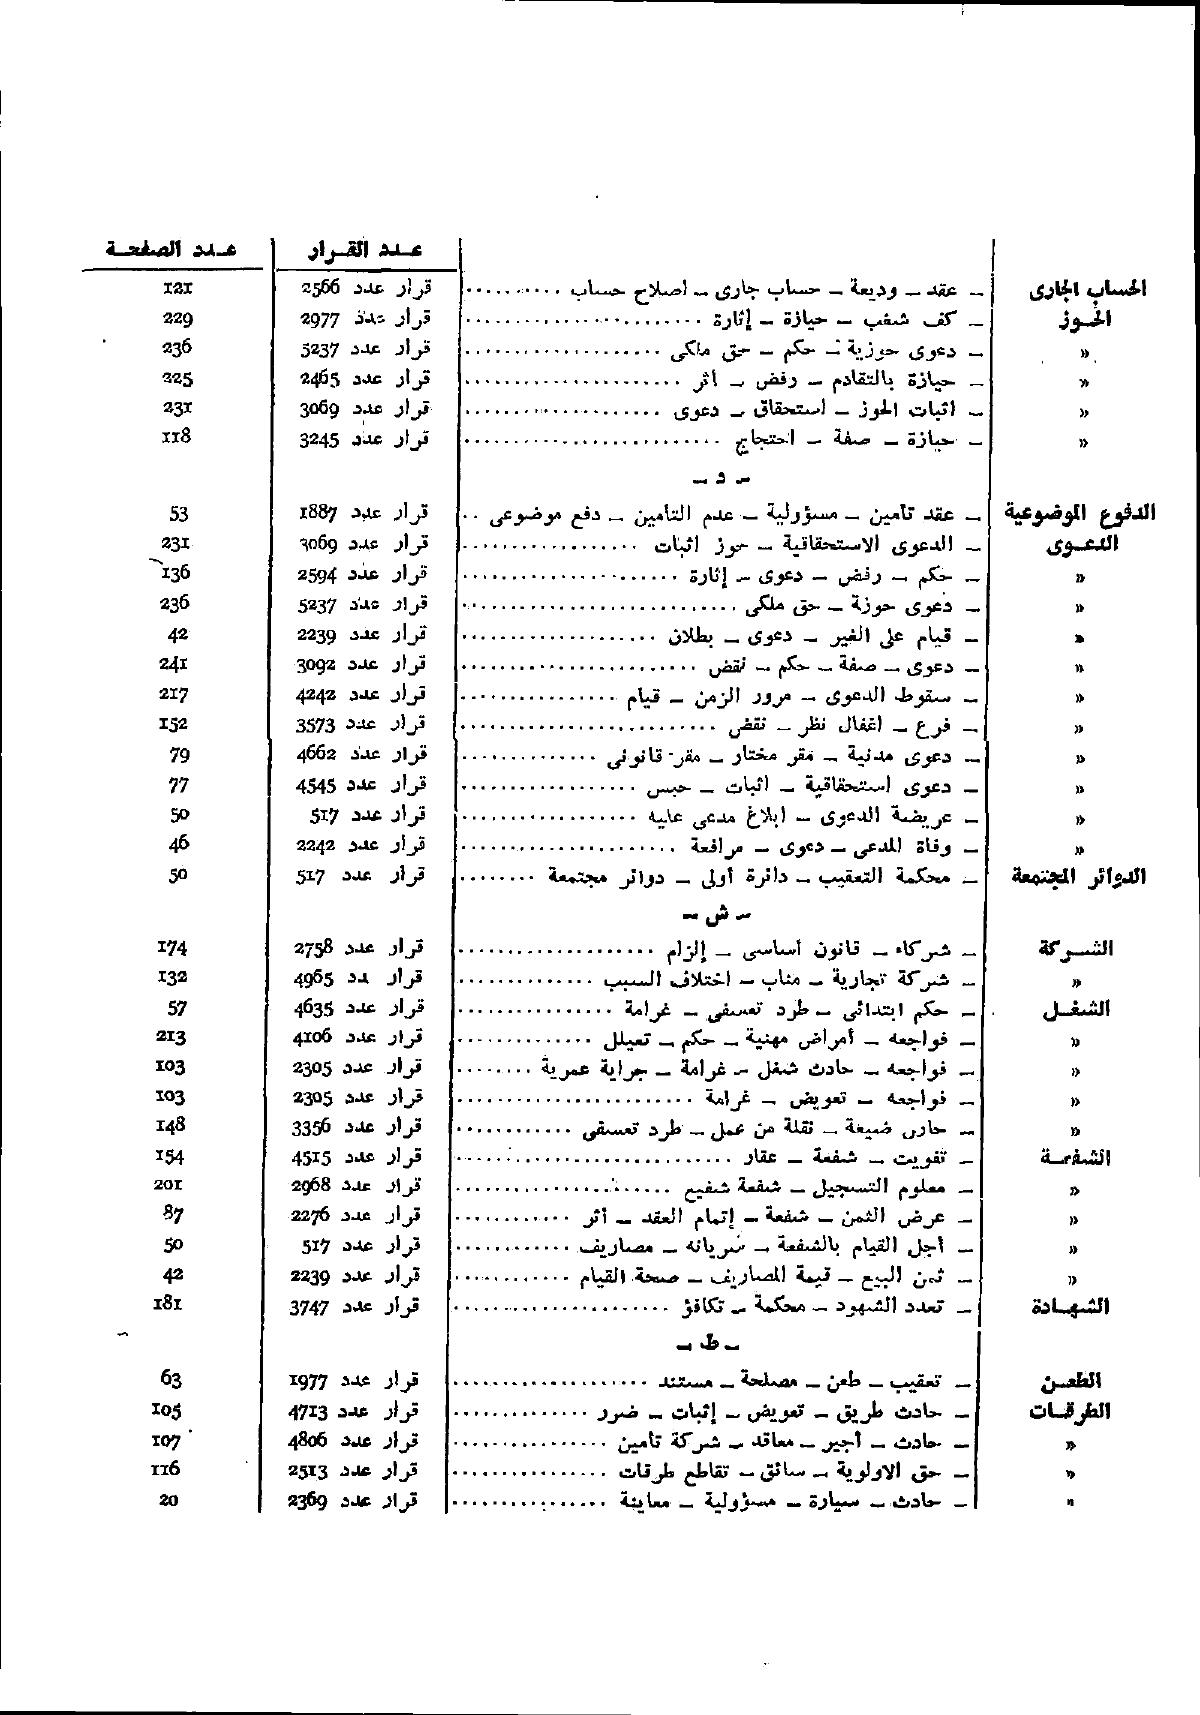 عدد القرار عدد الصفحة
الحساب الجارى – عقد – وديعة – حساب جارى – اصلاح حساب .......... قرار عدد 2566 121
الحوز – كف شغب – حيازة – إثارة .......... قرار عدد 2977 229
» – دعوى حوزية – حكم – حق ملكى .......... قرار عدد 5237 236
» – حيازة بالتقادم – رفض – أثر .......... قرار عدد 2465 225
» – اثبات الحوز – استحقاق – دعوى .......... قرار عدد 3069 231
» – حيازة – صفة – احتجاج .......... قرار عدد 3245 118
– د –
الدفوع الموضوعية – عقد تأمين – مسؤولية – عدم التأمين – دفع موضوعى .. قرار عدد 1887 53
الدعوى – الدعوى الاستحقاقية – حوز اثبات .......... قرار عدد 3069 231
» – حكم – رفض – دعوى – إثارة .......... قرار عدد 2594 136
» – دعوى حوزة – حق ملكى .......... قرار عدد 5237 236
» – قيام على الغير – دعوى – بطلان .......... قرار عدد 2239 42
» – دعوى – صفة – حكم – نقض .......... قرار عدد 3092 241
» – سقوط الدعوى – مرور الزمن – قيام .......... قرار عدد 4242 217
» – فرع – اغفال نظر – نقض .......... قرار عدد 3573 152
» – دعوى مدنية – مقر مختار – مقر قانونى .......... قرار عدد 4662 79
» – دعوى استحقاقية – اثبات – حبس .......... قرار عدد 4545 77
» – عريضة الدعوى – ابلاغ مدعى عليه .......... قرار عدد 517 50
» – وفاة المدعى – دعوى – مرافعة .......... قرار عدد 2242 46
الدوائر المجتمعة – محكمة التعقيب – دائرة أولى – دوائر مجتمعة ........ قرار عدد 517 50
– ش –
الشركة – شركاء – قانون أساسى – إلزام .......... قرار عدد 2758 174
» – شركة تجارية – مناب – اختلاف السبب .......... قرار عدد 4965 132
الشغل – حكم ابتدائى – طرد تعسفى – غرامة .......... قرار عدد 4635 57
» – فواجعه – أمراض مهنية – حكم – تعليل .......... قرار عدد 4106 213
» – فواجعه – حادث شغل – غرامة – جراية عمرية ........ قرار عدد 2305 103
» – فواجعه – تعويض – غرامة .......... قرار عدد 2305 103
» – حارس ضيعة – نقلة من عمل – طرد تعسفى .......... قرار عدد 3356 148
الشفعة – تفويت – شفعة – عقار .......... قرار عدد 4515 154
» – معلوم التسجيل – شفعة شفيع .......... قرار عدد 2968 201
» – عرض الثمن – شفعة – إتمام العقد – أثر .......... قرار عدد 2276 87
» – أجل القيام بالشفعة – سريانه – مصاريف .......... قرار عدد 517 50
» – ثمن البيع – قيمة المصاريف – صحة القيام .......... قرار عدد 2239 42
الشهادة – تعدد الشهود – محكمة – تكافؤ .......... قرار عدد 3747 181
– ط –
الطعن – تعقيب – طعن – مصلحة – مستند .......... قرار عدد 1977 63
الطرقات – حادث طريق – تعويض – إثبات – ضرر .......... قرار عدد 4713 105
» – حادث – أجير – معاقد – شركة تأمين .......... قرار عدد 4806 107
» – حق الاولوية – سائق – تقاطع طرقات .......... قرار عدد 2513 116
» – حادث – سيارة – مسؤولية – معاينة .......... قرار عدد 2369 20